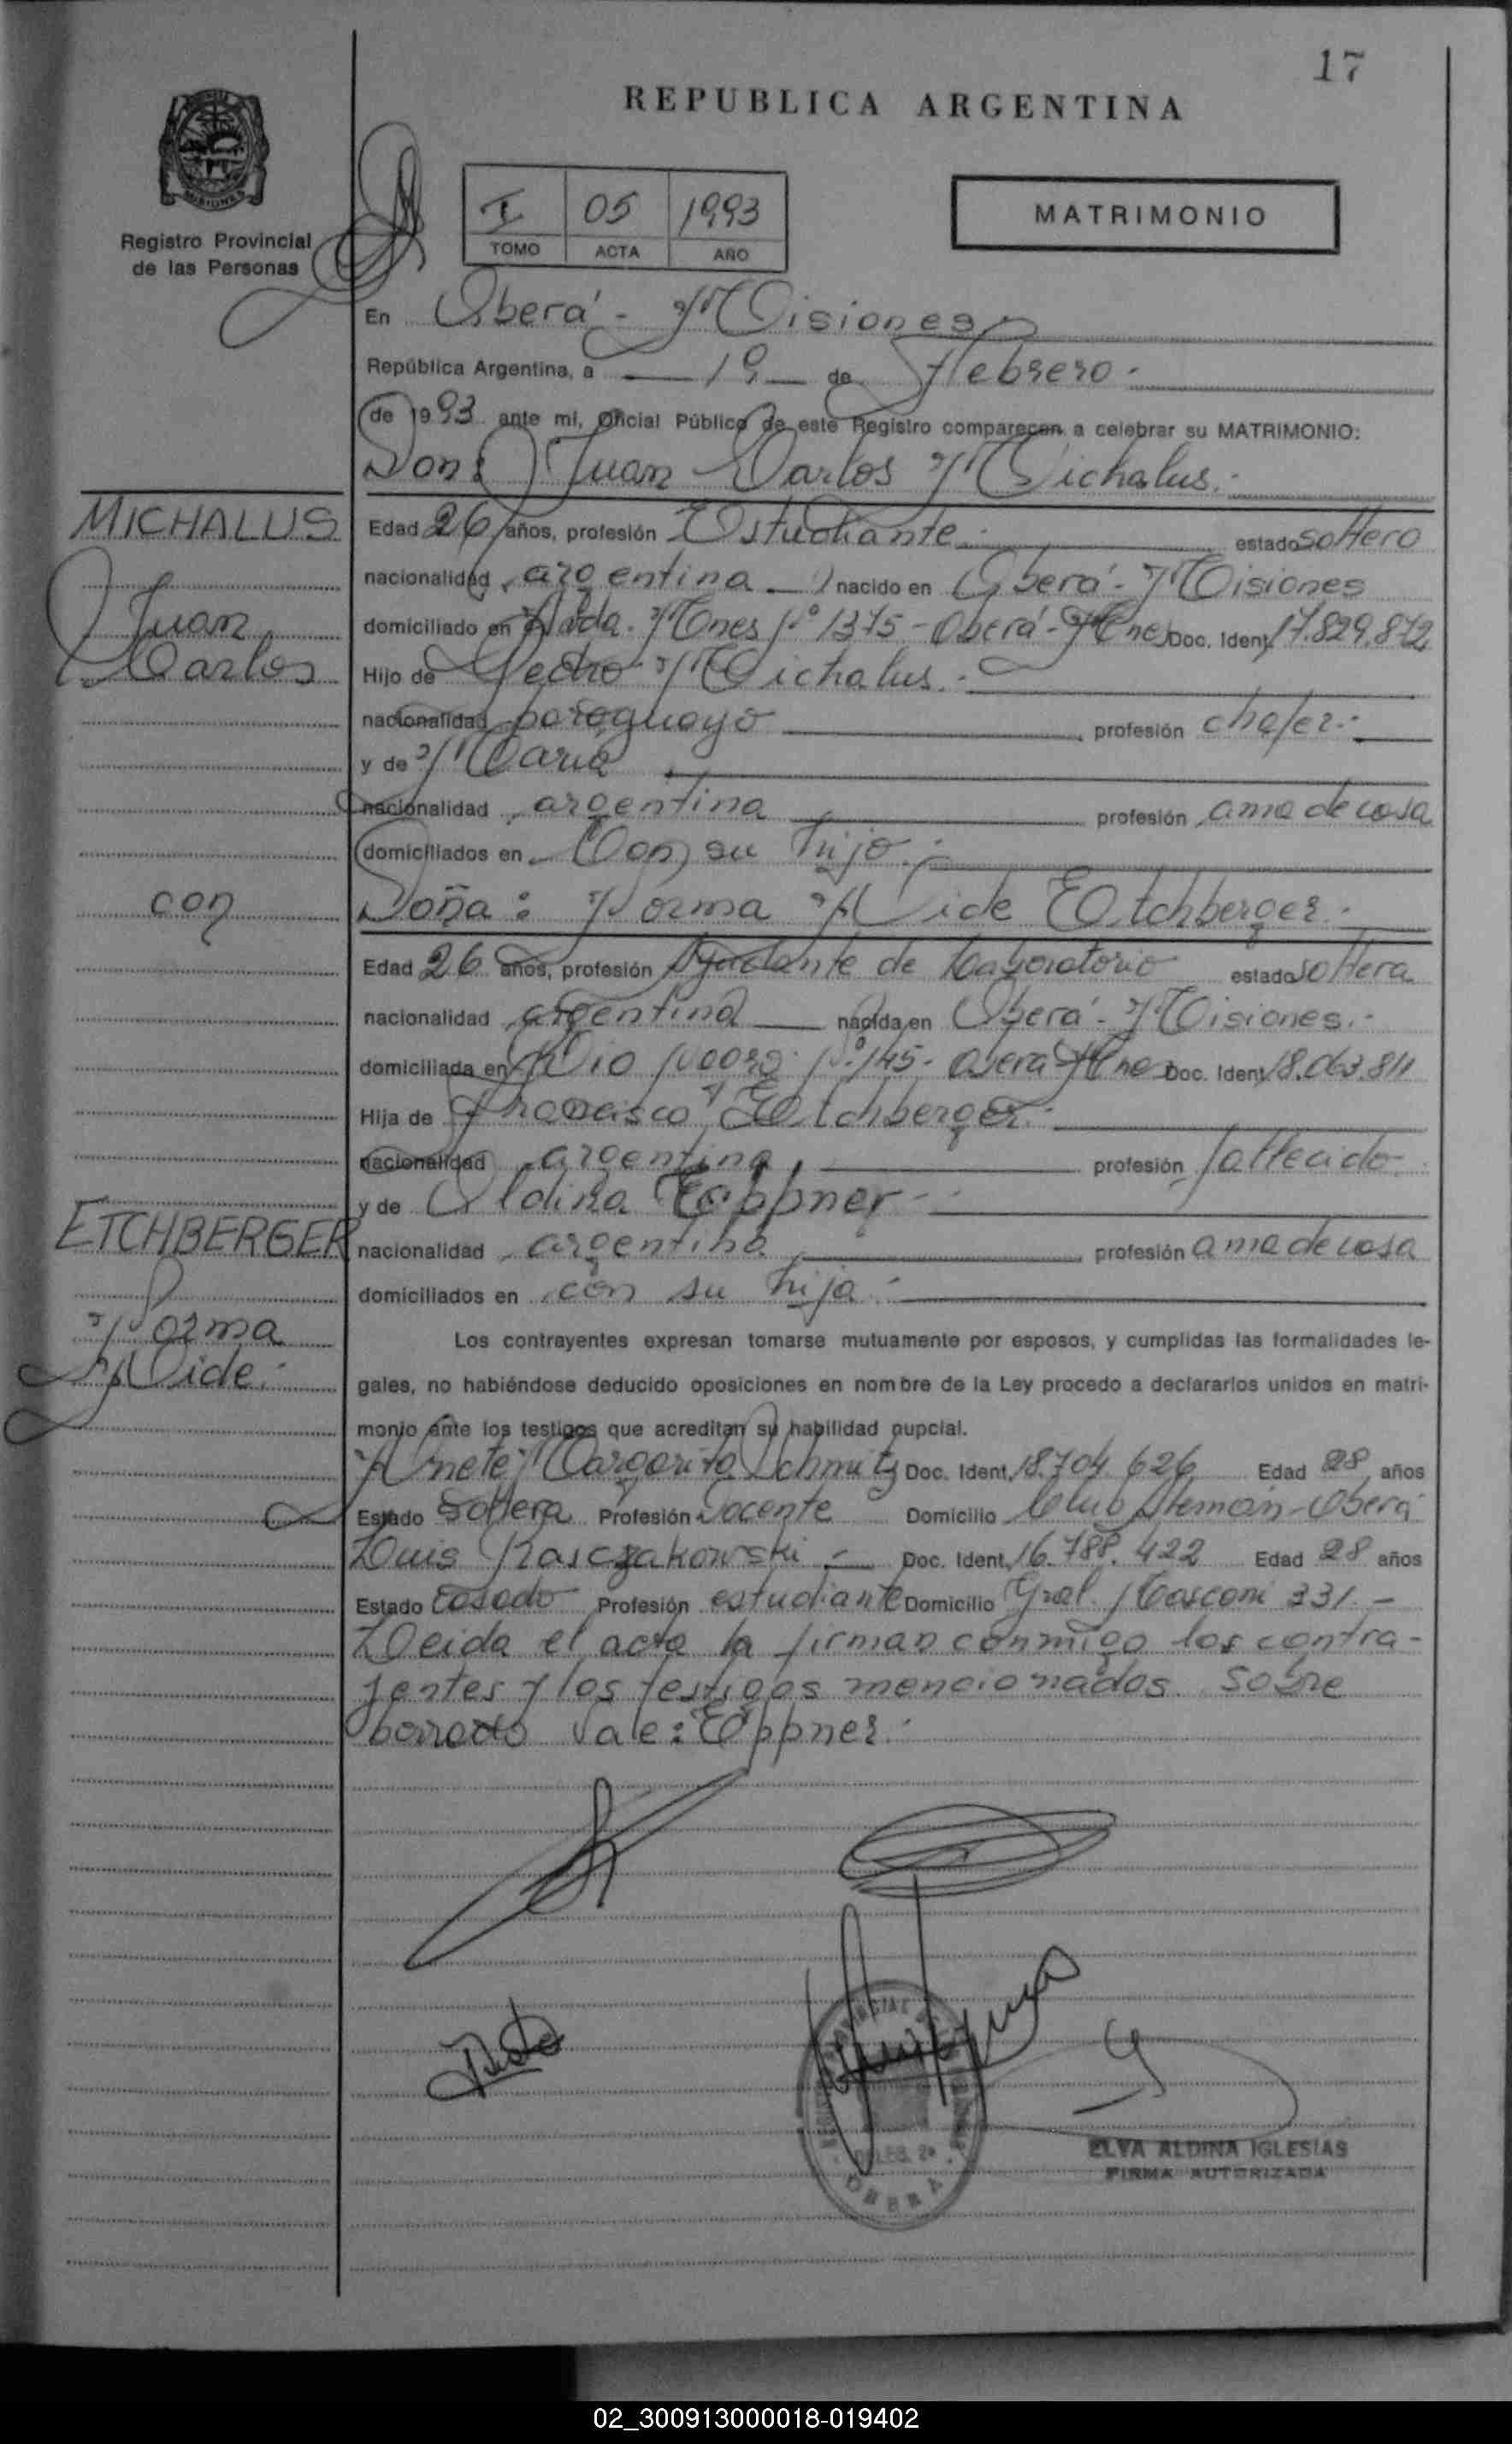 17
REPUBLICA ARGENTINA
I 05 1993
TOMO ACTA AÑO
MATRIMONIO
Registro Provincial
de las Personas
En Oberá - Misiones
República Argentina, a 19 de Febrero.
de 1993 ante mi, Oficial Público de este Registro comparecen a celebrar su MATRIMONIO:
Don: Juan Carlos Michalus.-
MICHALUS
Juan
Carlos
Edad 26 años, profesión Estudiante.- estado soltero
nacionalidad argentina nacido en Oberá - Misiones
domiciliado en Avda. Mnes Nº 1375 - Oberá - Mnes Doc. Ident. 17.829.872
Hijo de Pedro Michalus.-
nacionalidad paraguayo profesión chofer.-
y de Maria
nacionalidad argentina profesión ama de casa
domiciliados en Con su hijo.-
con
Doña: Norma Aide Etchberger.-
Edad 26 años, profesión Ayudante de Laboratorio estado soltera
nacionalidad argentina nacida en Oberá - Misiones.-
domiciliada en Rio Nº 145 - Oberá Mnes Doc. Ident. 18.063.811
Hija de Francisco Etchberger.-
nacionalidad argentina, profesión fallecido.
y de Aldina Eppner.-
nacionalidad argentina profesión ama de casa
domiciliados en con su hija.-
ETCHBERGER
Norma
Aide.-
Los contrayentes expresan tomarse mutuamente por esposos, y cumplidas las formalidades le-
gales, no habiéndose deducido oposiciones en nombre de la Ley procedo a declararlos unidos en matri-
monio ante los testigos que acreditan su habilidad nupcial.
Anete Margarita Schmitz Doc. Ident. 18.704.626 Edad 28 años
Estado Soltera Profesión Docente Domicilio Club Aleman - Oberá
Luis Kasczakowski.- Doc. Ident. 16.788.422 Edad 28 años
Estado casado Profesión estudiante Domicilio Gral. Mosconi 331.-
Leida el acta la firman conmigo los contra-
yentes y los testigos mencionados. Sobre
borrado Vale: Eppner.-
ELVA ALDINA IGLESIAS
FIRMA AUTORIZADA
02_300913000018-019402